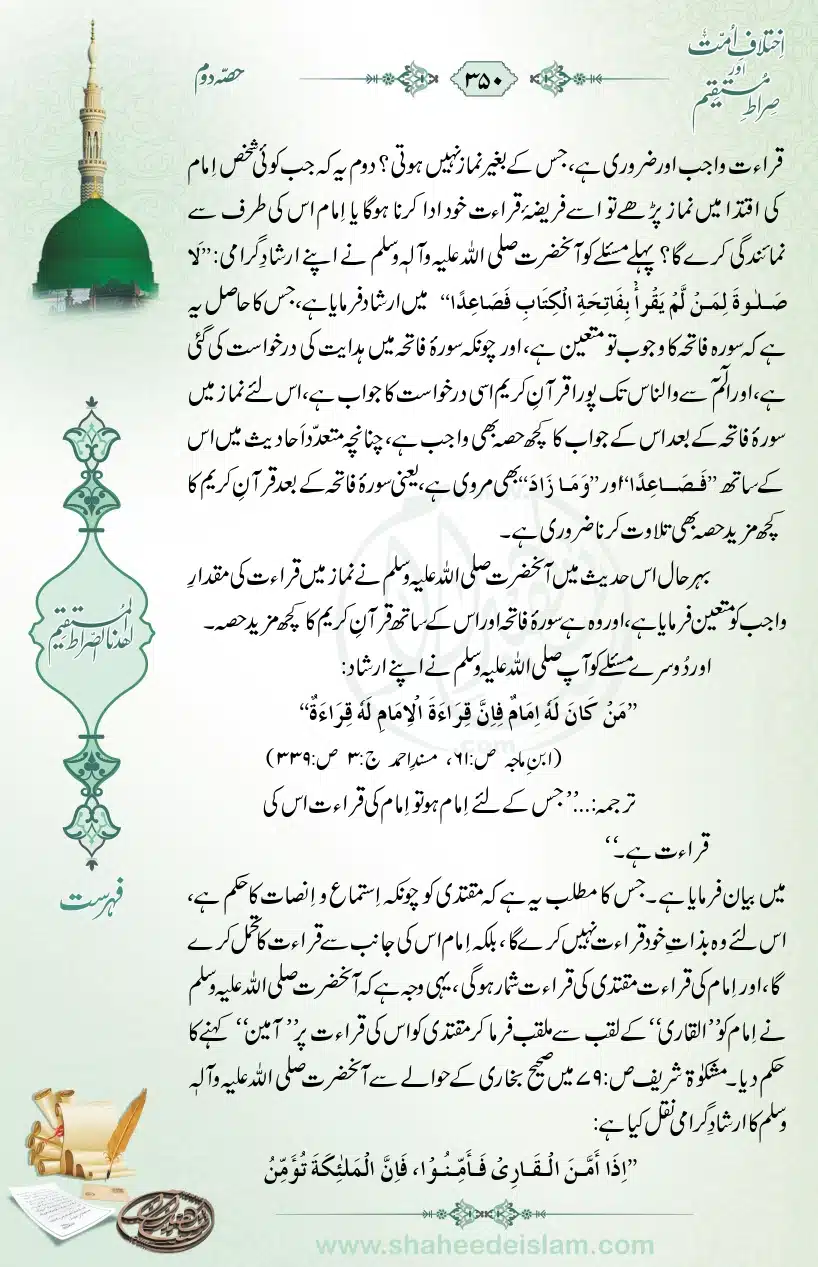 اِختلافِ اُمّت
اور
صِراطِ مُستقیم
۳۵۰
حصّہ دوم
قراءت واجب اور ضروری ہے، جس کے بغیر نماز نہیں ہوتی؟ دوم یہ کہ جب کوئی شخص اِمام
کی اقتدا میں نماز پڑھے تو اسے فریضۂ قراءت خود ادا کرنا ہوگا یا اِمام اس کی طرف سے
نمائندگی کرے گا؟ پہلے مسئلے کو آنحضرت صلی اللہ علیہ وآلہٖ وسلم نے اپنے ارشادِ گرامی: ”لَا
صَلٰوةَ لِمَنْ لَّمْ يَقْرَأْ بِفَاتِحَةِ الْكِتَابِ فَصَاعِدًا“ میں ارشاد فرمایا ہے، جس کا حاصل یہ
ہے کہ سورہ فاتحہ کا وجوب تو متعین ہے، اور چونکہ سورۂ فاتحہ میں ہدایت کی درخواست کی گئی
ہے، اور الٓمٓ سے والناس تک پورا قرآنِ کریم اسی درخواست کا جواب ہے، اس لئے نماز میں
سورۂ فاتحہ کے بعد اس کے جواب کا کچھ حصہ بھی واجب ہے، چنانچہ متعدّد اَحادیث میں اس
کے ساتھ ”فَصَاعِدًا“ اور ”وَمَا زَادَ“ بھی مروی ہے، یعنی سورۂ فاتحہ کے بعد قرآنِ کریم کا
کچھ مزید حصہ بھی تلاوت کرنا ضروری ہے۔
بہرحال اس حدیث میں آنحضرت صلی اللہ علیہ وسلم نے نماز میں قراءت کی مقدارِ
واجب کو متعین فرمایا ہے، اور وہ ہے سورۂ فاتحہ اور اس کے ساتھ قرآنِ کریم کا کچھ مزید حصہ۔
اور دُوسرے مسئلے کو آپ صلی اللہ علیہ وسلم نے اپنے ارشاد:
”مَنْ كَانَ لَهٗ اِمَامٌ فَاِنَّ قِرَاءَةَ الْاِمَامِ لَهٗ قِرَاءَةٌ“
(ابنِ ماجہ ص:۶۱، مسندِ احمد ج:۳ ص:۳۳۹)
ترجمہ:...”جس کے لئے اِمام ہو تو اِمام کی قراءت اس کی
قراءت ہے۔“
میں بیان فرمایا ہے۔ جس کا مطلب یہ ہے کہ مقتدی کو چونکہ اِستماع و اِنصات کا حکم ہے،
اس لئے وہ بذاتِ خود قراءت نہیں کرے گا، بلکہ اِمام اس کی جانب سے قراءت کا تحمل کرے
گا، اور اِمام کی قراءت مقتدی کی قراءت شمار ہوگی، یہی وجہ ہے کہ آنحضرت صلی اللہ علیہ وسلم
نے اِمام کو ”القاریٔ“ کے لقب سے ملقب فرما کر مقتدی کو اس کی قراءت پر ”آمین“ کہنے کا
حکم دیا۔ مشکوٰۃ شریف ص:۷۹ میں صحیح بخاری کے حوالے سے آنحضرت صلی اللہ علیہ وآلہٖ
وسلم کا ارشادِ گرامی نقل کیا ہے:
”اِذَا أَمَّنَ الْقَارِئُ فَأَمِّنُوْا، فَاِنَّ الْمَلٰئِكَةَ تُؤَمِّنُ
اِھدنا الصّراط المُستقیم
فہرست
www.shaheedeislam.com